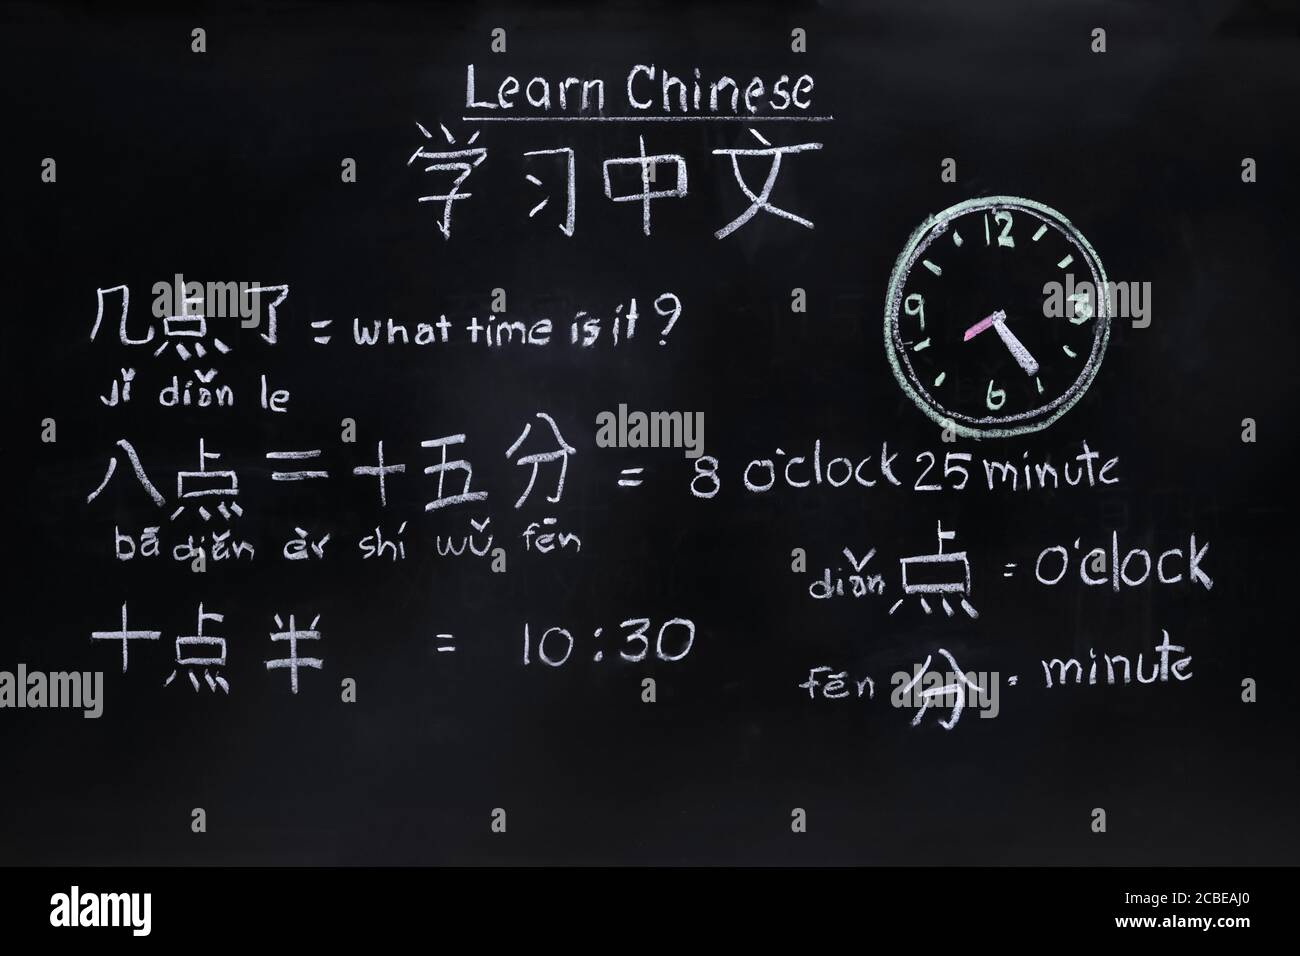 Learn Chinese
学习中文
几点了 = what time is it?
jǐ diǎn le
八点二十五分 = 8 o'clock 25 minute
bā diǎn èr shí wǔ fēn
diǎn 点 = o'clock
十点半 = 10:30
fēn 分 = minute
12
9
3
6
alamy
Image ID: 2CBEAJ0
www.alamy.com